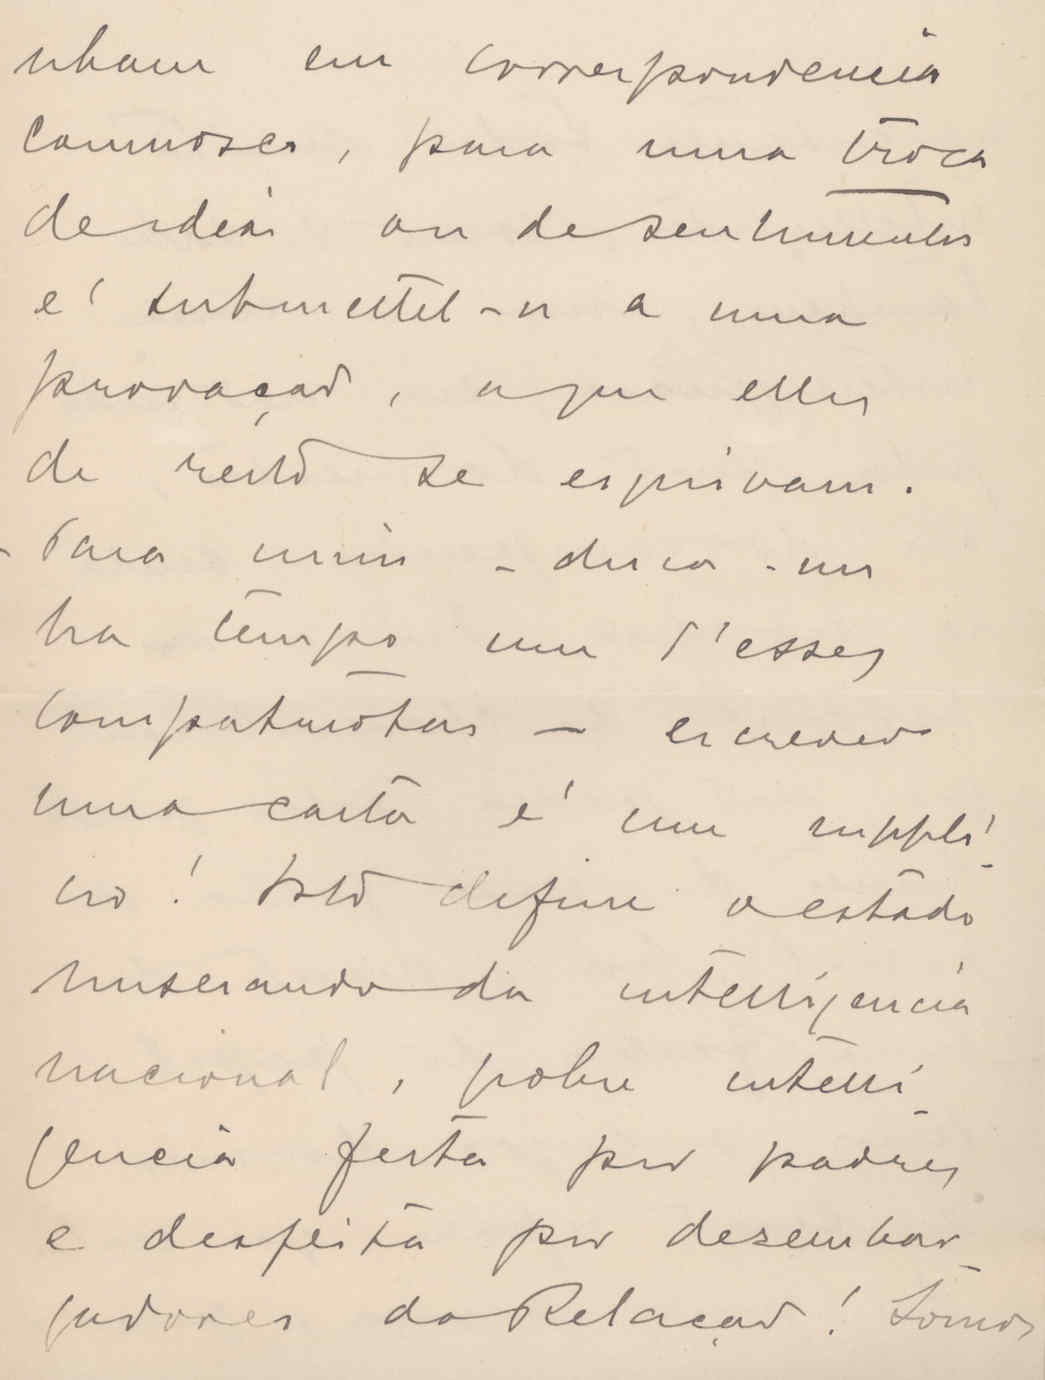 nham em correspondencia
comnosco, para uma troca
de ideias ou de sentimentos
é submettel-os a uma
provação, a que elles
de resto se esquivam.
- Para mim - dizia-me
ha tempo um d'esses
compatriotas — escrever
uma carta é um suppli-
cio! Isto define o estado
miserando da intelligencia
nacional, pobre intelli-
gencia feita por padres
e desfeita por desembar
gadores da Relação! Somos